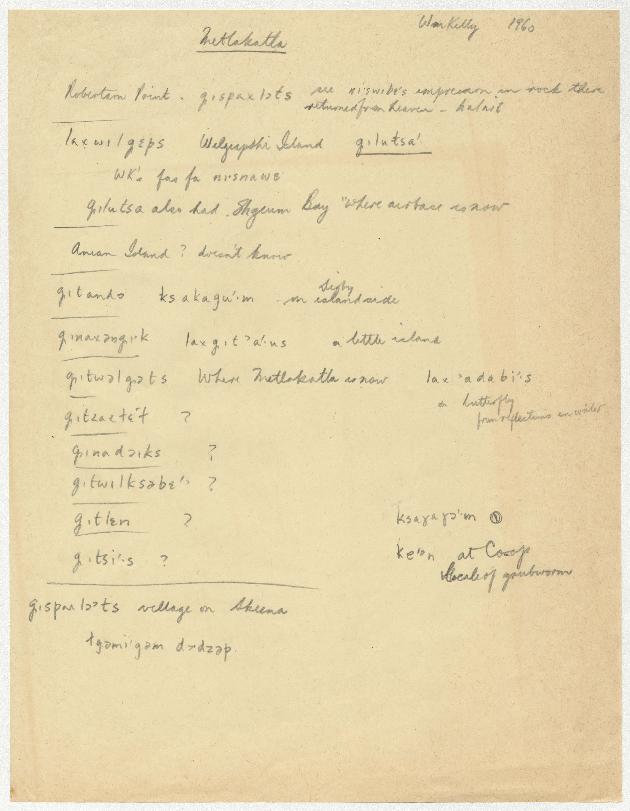 Wm Kelly 1960
Metlakatla
Robertson Point. gıspaxlɔts see nıswibe's impression in rock there
returned from heaven - halait
laxwılgɛps Island gılutsa'
WK's fa fa nısnawɛ
gılutsa also had Bay "Where airbase is now
Anian Island ? doesn't know
gıtandɔ ksakagu'ım on Digby island side
gınaxəngı·k laxgıtʔa'us a little island
gıtwəlgəts Where Metlakatla is now laxʔadabi's
on butterfly
from reflections on water
?
gınadəıks ?
gıtwılksəbɛ' ?
gıtlɛn ?
gıtsi·s ?
ksaɣaɣɔ'm
keʹən at Co-op
Locale of grubworm
gıspaxlɔʹts village on Skeena
łgəmiʹgəm dzɔp